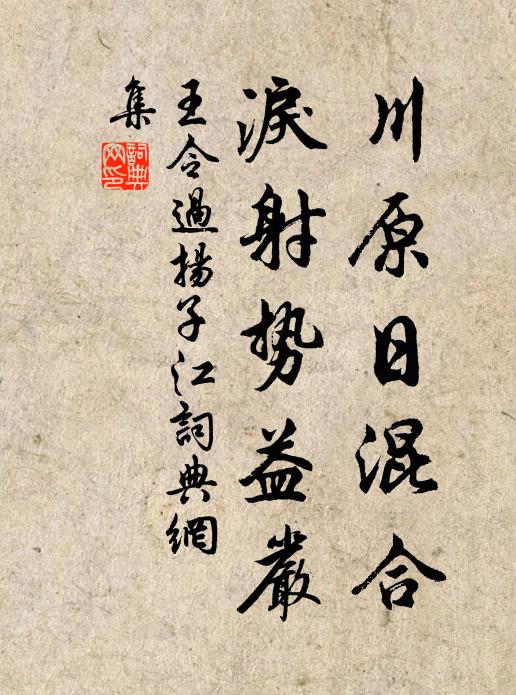 川原日混合
淚射勢益嚴
王令過揚子江詞典網
集
詞典網印